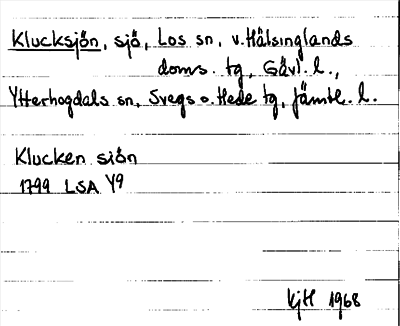 Klucksjön, sjö, Los sn, v. Hälsinglands
doms. tg, Gävl. l.,
Ytterhogdals sn, Svegs o. Hede tg, Jämtl. l.
Klucken siön
1799 LSA Y9
KjH 1968